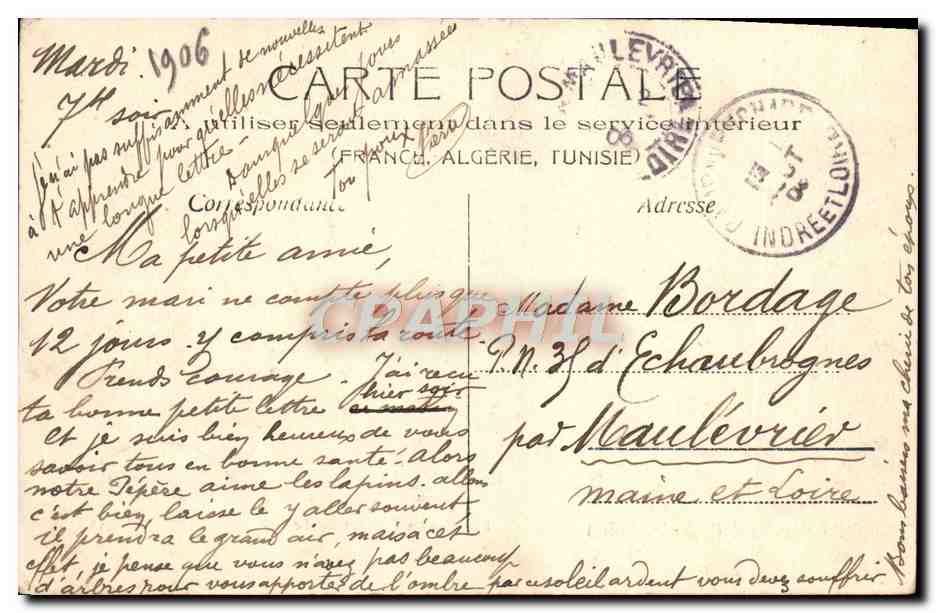 Mardi.
1906
7h soir
CARTE POSTALE
A utiliser seulement dans le service intérieur
(FRANCE, ALGÉRIE, TUNISIE)
Correspondance
Adresse
j'en'ai pas suffisamment de nouvelles
à t'apprendre pour qu'elles nécessitent
une longue lettre -
Dans quelques jours
lorsqu'elles se seront amassées
Ton poux
Ma petite amie,
Votre mari ne compte plus que
12 jours - y compris la route.
Prends courage - J'ai reçu
ta bonne petite lettre hier soir
et je suis bien heureux de vous
savoir tous en bonne santé - Alors
notre Pépère aime les lapins. allons
c'est bien, laisse le y aller souvent
il prendra le grand air, mais à cet
effet, je pense que vous n'avez pas beaucoup
d'arbres pour vous apporter de l'ombre par ce soleil ardent vous devez souffrir
Bons baisers ma chérie de ton époux.
Madame Bordage
P.N. 35 d'Echaubrognes
par Maulévrier
Maine et Loire
MAULEVRIER
INDRE ET LOIRE
CPAPHIL